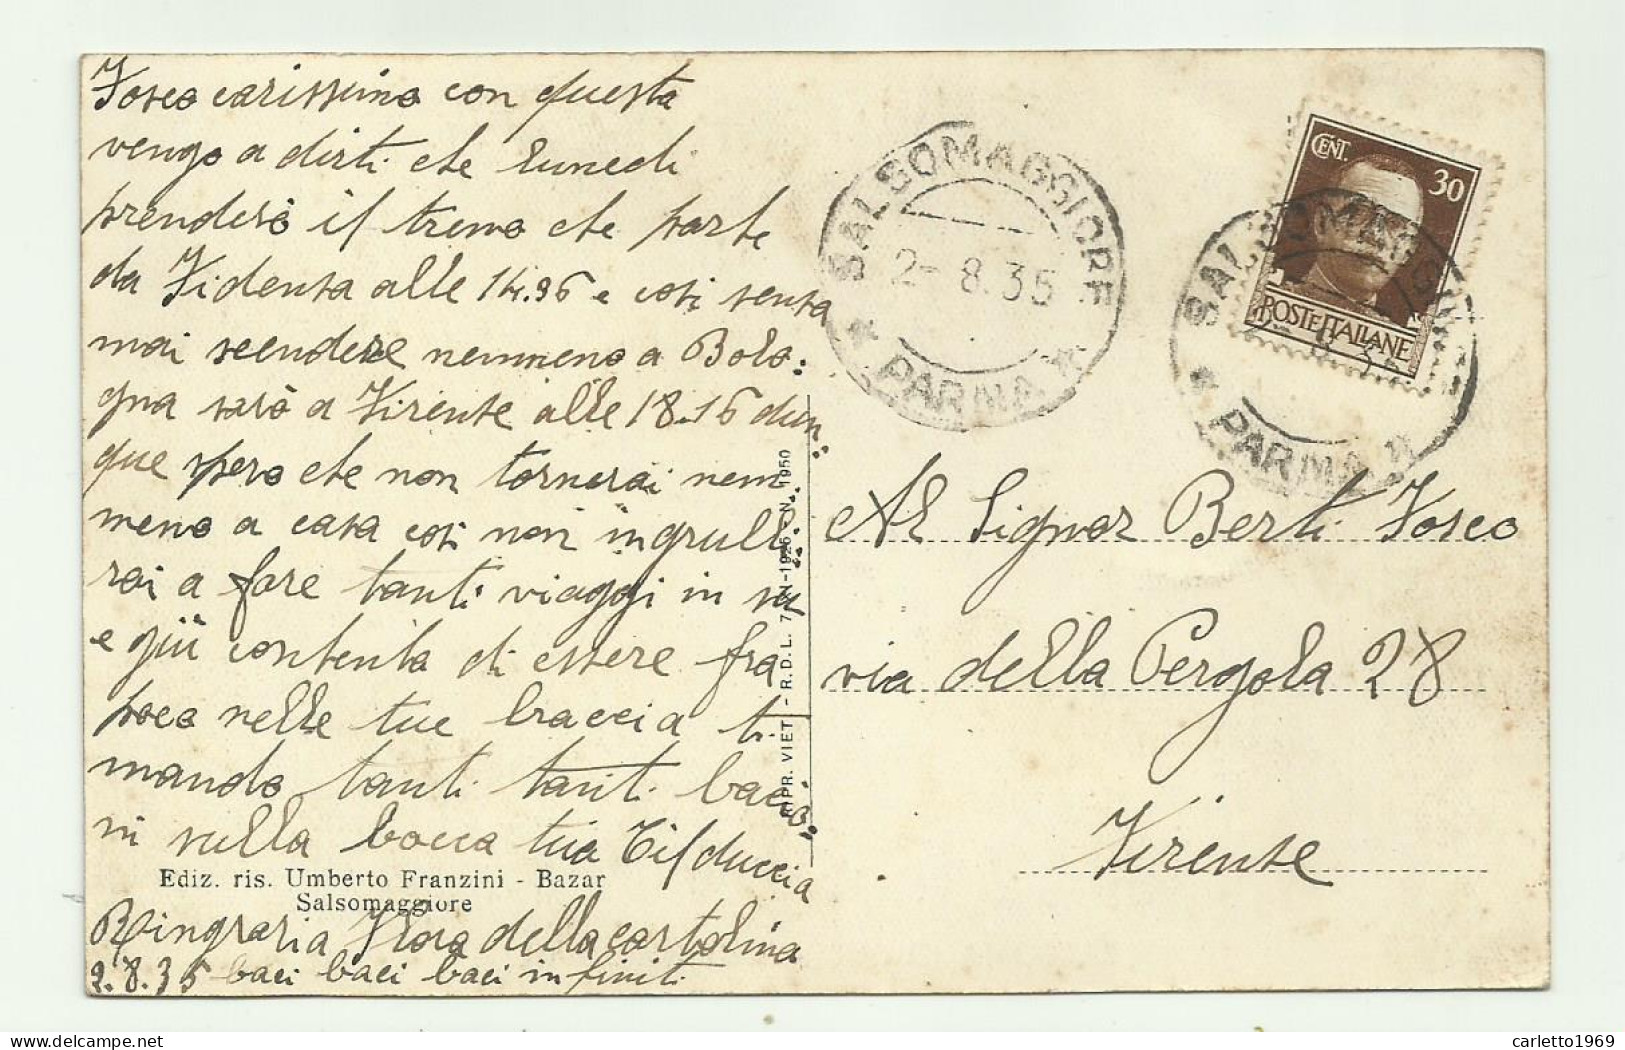 Fosco carissimo con questa
vengo a dirti che lunedi
prenderò il treno che parte
da Fidenza alle 14.36 e così senza
mai scendere nemmeno a Bolo:
gna sarò a Firenze alle 18.16 dun:
que spero che non tornerai nem
meno a casa così non ingrulli:
rai a fare tanti viaggi in su
e giù contenta di essere fra
poco nelle tue braccia ti
mando tanti tanti bacio:
ni sulla bocca tua
Ediz. ris. Umberto Franzini - Bazar
Salsomaggiore
Ringrazia Flora della cartolina
2.8.35 baci baci baci infiniti
IMPR. VIET - R.D.L. 7-XI-1925 - N. 1950
SALSOMAGGIORE
2-8.35
* PARMA *
CENT. 30
POSTE ITALIANE
SALSOMAGGIORE
* PARMA *
Al Signor Berti Fosco
via della Pergola 28
Firenze
delcampe.net
carletto1969